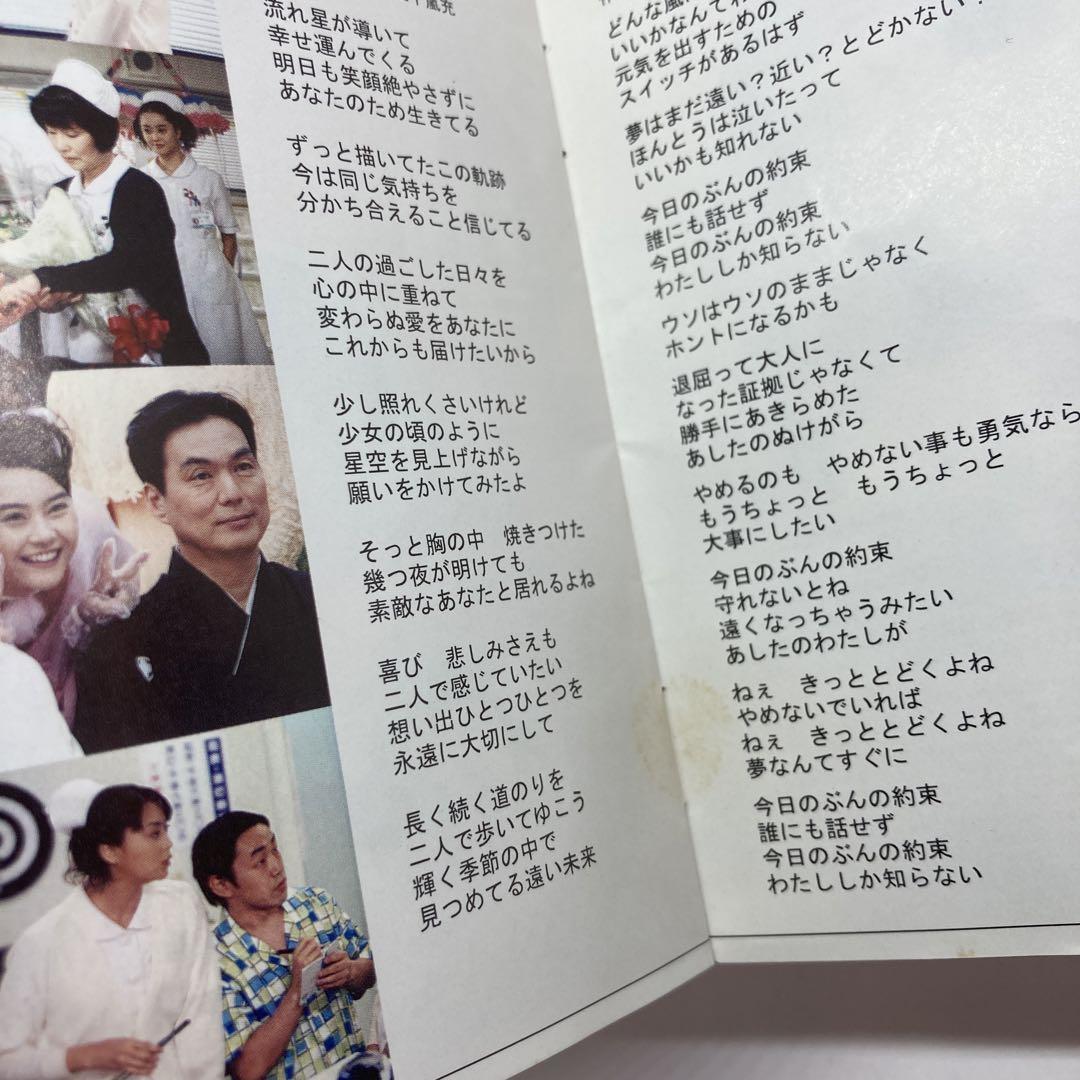 流れ星が導いて
幸せ運んでくる
明日も笑顔絶やさずに
あなたのため生きてる
ずっと描いてたこの軌跡
今は同じ気持ちを
分かち合えること信じてる
二人の過ごした日々を
心の中に重ねて
変わらぬ愛をあなたに
これからも届けたいから
少し照れくさいけれど
少女の頃のように
星空を見上げながら
願いをかけてみたよ
そっと胸の中　焼きつけた
幾つ夜が明けても
素敵なあなたと居れるよね
喜び　悲しみさえも
二人で感じていたい
想い出ひとつひとつを
永遠に大切にして
長く続く道のりを
二人で歩いてゆこう
輝く季節の中で
見つめてる遠い未来
どんな風に
いいかなんて
元気を出すための
スイッチがあるはず
夢はまだ遠い？近い？とどかない？
ほんとうは泣いたって
いいかも知れない
今日のぶんの約束
誰にも話せず
今日のぶんの約束
わたししか知らない
ウソはウソのままじゃなく
ホントになるかも
退屈って大人に
なった証拠じゃなくて
勝手にあきらめた
あしたのぬけがら
やめるのも　やめない事も勇気なら
もうちょっと　もうちょっと
大事にしたい
今日のぶんの約束
守れないとね
遠くなっちゃうみたい
あしたのわたしが
ねぇ　きっととどくよね
やめないでいれば
ねぇ　きっととどくよね
夢なんてすぐに
今日のぶんの約束
誰にも話せず
今日のぶんの約束
わたししか知らない